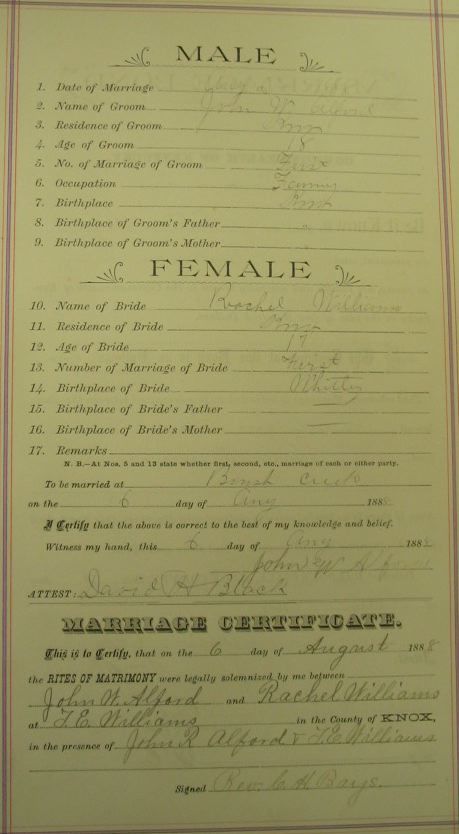 MALE
1. Date of Marriage
2. Name of Groom John W. Alford
3. Residence of Groom Knox
4. Age of Groom 18
5. No. of Marriage of Groom First
6. Occupation Farmer
7. Birthplace Knox
8. Birthplace of Groom's Father "
9. Birthplace of Groom's Mother "
FEMALE
10. Name of Bride Rachel Williams
11. Residence of Bride Knox
12. Age of Bride 17
13. Number of Marriage of Bride First
14. Birthplace of Bride Whitley
15. Birthplace of Bride's Father
16. Birthplace of Bride's Mother
17. Remarks
N. B.—At Nos. 5 and 13 state whether first, second, etc., marriage of each or either party.
To be married at Brush Creek
on the 6 day of Aug 1888
I Certify that the above is correct to the best of my knowledge and belief.
Witness my hand, this 6 day of Aug 1888
John W Alford
ATTEST: David H Black
MARRIAGE CERTIFICATE.
This is to Certify, that on the 6 day of August 1888
the RITES OF MATRIMONY were legally solemnized by me between
John W. Alford and Rachel Williams
at T.E. Williams in the County of KNOX,
in the presence of John R Alford & T.E Williams
Signed Rev. C. H. Bays.